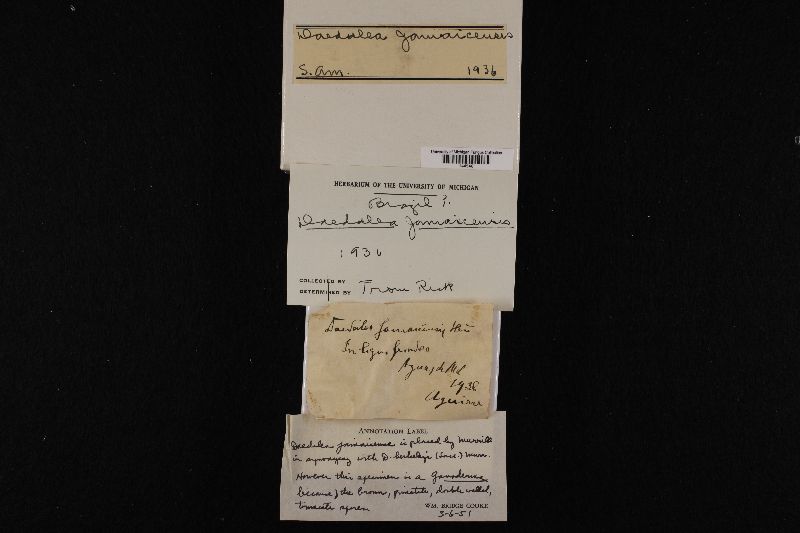 Daedalea Jamaicensis
S. Am. 1936
University of Michigan Fungus Collection
HERBARIUM OF THE UNIVERSITY OF MICHIGAN
Brazil ?
Daedalea Jamaicensis
1936
COLLECTED BY
DETERMINED BY From Rick
Jamaicensis
1936
ANNOTATION LABEL
Daedalea jamaicense is placed by Murrill
in synonymy with D. (Sacc.) Murr.
However this specimen is a Ganoderma
because of the brown, punctate, double walled,
truncate spores
WM. BRIDGE COOKE
3-6-51